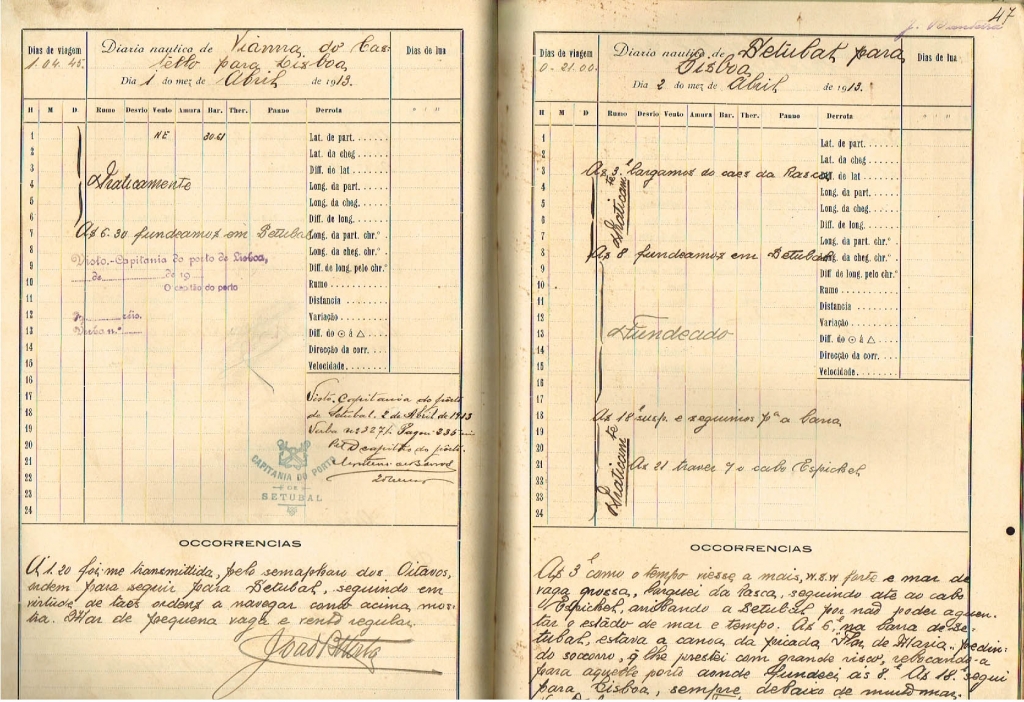 Dias de viagem
1.04.45.
Diario nautico de Vianna do Cas-
tello para Lisboa
Dia 1 do mez de Abril de 1913.
Dias de lua
H M D Rumo Desvio Vento Amura Bar. Ther. Panno Derrota
1 NE 30.61 Lat. de part.
2 Lat. da cheg
3 Diff. de lat
4 Praticamente Long. da part.
5 Long. da cheg.
6 Diff. de long.
7 Às 6.30 fundeamos em Setubal Long. da part. chr.º
8 Long. da cheg. chr.º
9 Visto.-Capitania do porto de Lisboa, Diff. de long. pelo chr.º
10 de de 19 Rumo
O capitão do porto
11 Distancia
12 Variação
13 Verba n.º Diff. do ⊙ á △
14 Direcção da corr.
15 Velocidade
16
17 Visto. Capitania do pôrto
18 de Setubal. 2 de Abril de 1913
19 Verba nº 327/1 Pagou 235
20 O capitão do pôrto.
21
22
23
24
CAPITANIA DO PORTO
DE
SETUBAL
OCCORRENCIAS
Á 1.20 foi-me transmittida, pelo semaphoro dos Oitavos,
ordem para seguir para Setubal, seguindo em
virtude de taes ordens a navegar como acima mos-
tra. Mar de pequena vaga e vento regular.
47
Dias de viagem
0-21.00.
Diario nautico de Setubal para
Lisboa
Dia 2 do mez de Abril de 1913.
Dias de lua
H M D Rumo Desvio Vento Amura Bar. Ther. Panno Derrota
1 Lat. de part.
2 Lat. da cheg
3 Às 3 largamos do caes da Diff. de lat
4 Praticamte Long. da part.
5 Long. da cheg.
6 Diff. de long.
7 Long. da part. chr.º
8 Às 8 fundeamos em Setubal Long. da cheg. chr.º
9 Diff. de long. pelo chr.º
10 Rumo
11 Distancia
12 Variação
13 Fundeado Diff. do ⊙ á △
14 Direcção da corr.
15 Velocidade
16
17
18 Às 18 susp. e seguimos pª a barra
19
20 Praticamte
21 Às 21 travez o cabo Espichel
22
23
24
OCCORRENCIAS
Às 3 como o tempo viesse a mais, W.S.W forte e mar de
vaga grossa, larguei da seguindo até ao cabo
Espichel, arribando a Setubal por não poder aguen-
tar o estado de mar e tempo. Às 6 na barra de Se-
tubal, estava a canoa da picada "Flor de Maria" pedin-
do socorro, q lhe prestei com grande risco, rebocando-a
para aquelle porto donde fundeei ás 8. Às 18. segui
para Lisboa, sempre debaixo de muito mar.